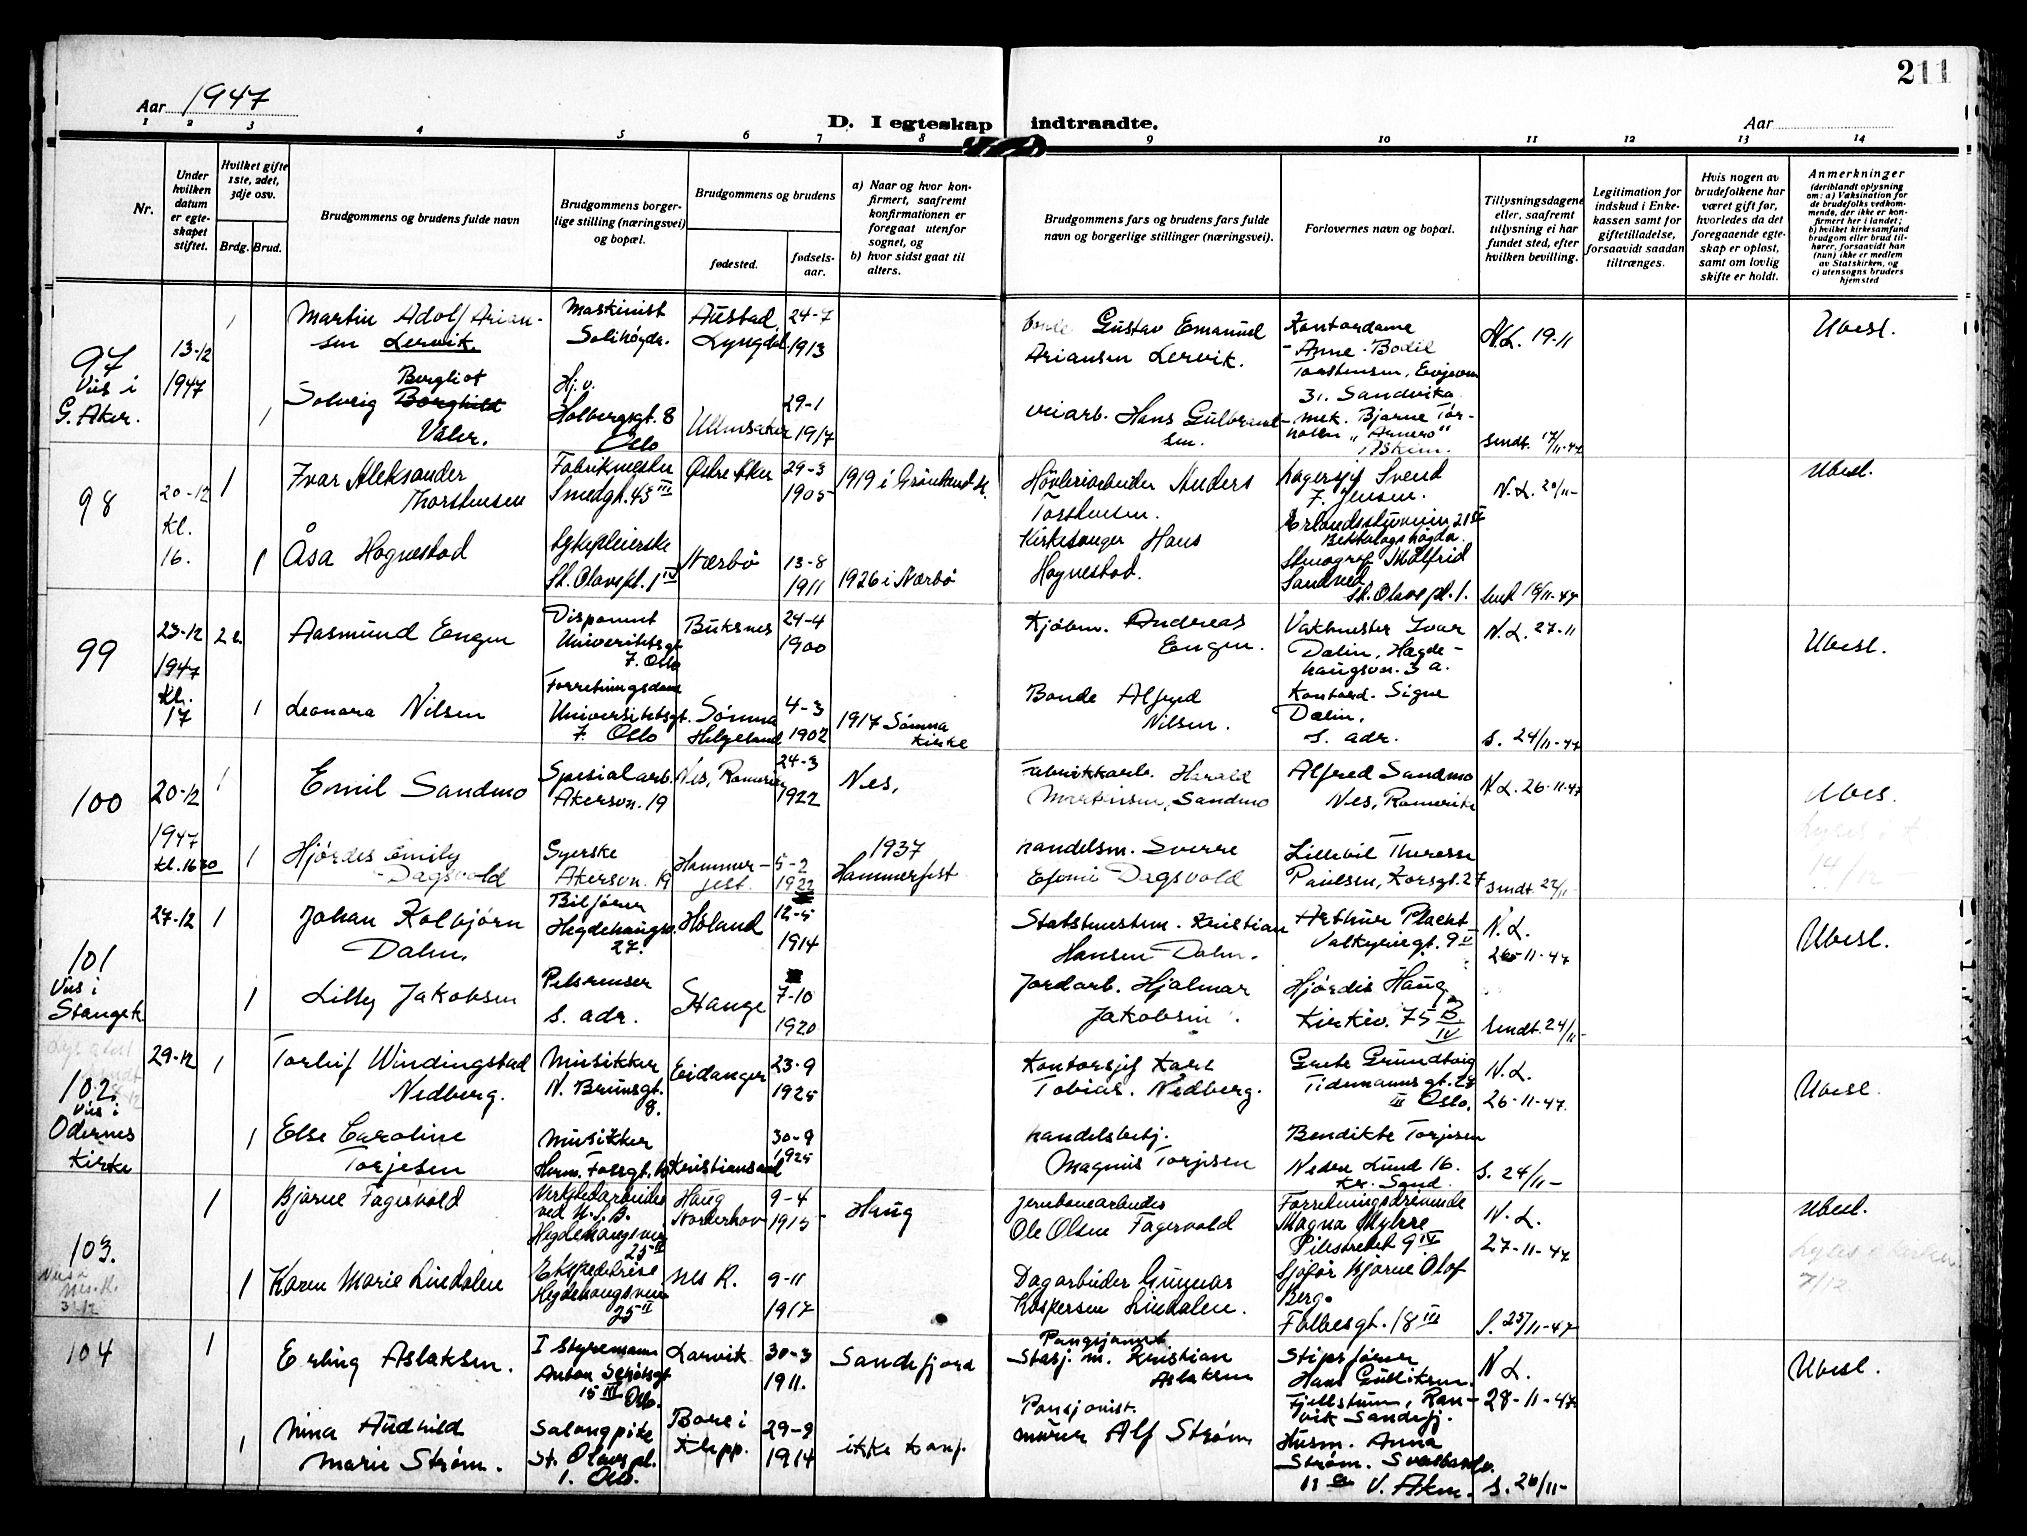 211
Aar 1947
D. I egteskap indtraadte.
Aar
1 2 3 4 5 6 7 8 9 10 11 12 13 14
Nr.
Under hvilken datum er egteskapet stiftet.
Hvilket gifte 1ste, 2det, 3dje osv.
Brdg. Brud.
Brudgommens og brudens fulde navn
Brudgommens borgerlige stilling (næringsvei) og bopæl.
Brudgommens og brudens
fødested. fødselsaar.
a) Naar og hvor konfirmert, saafremt konfirmationen er foregaat utenfor sognet, og
b) hvor sidst gaat til alters.
Brudgommens fars og brudens fars fulde navn og borgerlige stillinger (næringsvei).
Forlovernes navn og bopæl.
Tillysningsdagene eller, saafremt tillysning ei har fundet sted, efter hvilken bevilling.
Legitimation for indskud i Enkekassen samt for giftetilladelse, forsaavidt saadan tiltrænges.
Hvis nogen av brudefolkene har været gift før, hvorledes da det foregaaende egteskap er opløst, samt om lovlig skifte er holdt.
Anmerkninger
(deriblandt oplysning om: a) Vaksination for de brudefolks vedkommende, der ikke er konfirmert her i landet; b) hvilket kirkesamfund brudgom eller brud tilhører, forsaavidt han (hun) ikke er medlem av Statskirken, og c) utensogns bruders hjemsted
97
Viis i
G. Aker.
13-12
1947
1
Martin Adolf Ariansen Lervik.
Maskinist
Solihøgda.
Austad,
Lyngdal
24-7
1913
Gustav Emanuel
Ariansen Lervik.
Kontordame
Anne-Bodil
Torstensen,
31. Sandvika
N.L. 19-11
Ubesl.
1
Solveig Bergliot
Borghild
Valer.
Hj.v.
Holbergsgt. 8
Oslo
Ullensaker
29-1
1917
veiarb. Hans Gulbrandsen.
mek. Bjarne
"Armero"
Askim.
Smdt. 17/11-47
98
20-12
Kl.
16.
1
Ivar Aleksander
Thorstensen
Fabrikmester
Smedgt. 43 III
Østre Aker
29-3
1905
1919 i Grønland k.
Høvleriarbeider Anders
Torstensen.
Lagersjef Svend
F. Jensen.
21 II
Bekkelagshøgda.
N.L. 20/11-
Ubesl.
1
Åsa Hognestad
Sykepleierske
St. Olavspl. 1 IV
Nærbø
13-8
1911
1926 i Nærbø
Kirkesanger Hans
Hognestad.
Stenograf Thalfrid
Sandved
St. Olavs pl. 1.
18/11-47
99
23-12
1947
Kl.
17
2
Aasmund Engen
Disponent
Universitetsgt.
7. Oslo
Buksnes
24-4
1900
Kjøbm. Andreas
Engen.
Vaktmester Ivar
Dalin, Hegdehaugsvn. 3 a.
N.L. 27-11
Ubesl.
1
Leonora Nilsen
Forretningsdame
Universitetsgt.
7. Oslo
Sømna
Helgeland
4-3
1902
1917 Sømna
Kirke
Bonde Alfred
Nilsen.
Kontord. Signe
Dalin,
s. adr.
S. 24/11-47
100
20-12
1947
kl. 16 30
1
Emil Sandmo
Spesialarb.
Akersvn. 19
Nes, Romerike
24-3
1922
Nes,
Fabrikkarb. Harald
Martinsen, Sandmo
Alfred Sandmo
Nes, Romerike
N.L. 26-11-47
Ubes.
1
Hjørdis Emily
Dagsvold
Syerske
Akersvn. 19
Hammerfest
5-2
1922
1937
Hammerfest
Handelsm. Sverre
Dagsvold
Lillebil Therese
Paulsen, Korsgt. 27
Smdt. 22/11-
101
Viis i
Stange k.
27-12
1
Johan Kolbjørn
Dalen,
Biljører
Hegdehaugsv.
27.
Høland
12-5
1914
Kristian
Hansen Dalen.
Arthur Placht
Valkyriegt. 9 II
N.L.
26-11-47
Ubesl.
1
Lilly Jakobsen
Pelsrenser
s. adr.
Stange
7-10
1920
Jordarb. Hjalmar
Jakobsen.
Hjørdis Haug
Kirkev. 75 B
IV
Smdt. 24/11-
102.
Viis i
Odernes
Kirke
29-12
1
Torleif Windingstad
Nedberg.
Musikker
N. Brunsgt.
8.
Eidanger
23-9
1925
Kontorsjef Karl
Tobias. Nedberg.
Grete Grundtvig
Tidemannsgt. 28
III Oslo.
N.L.
26-11-47.
Ubesl.
1
Else Caroline
Torjesen
Musikker
Herm. Fossgt.
Kristiansand
30-9
1925
Handelsbetj.
Magnus Torjesen
Bendikte Torjesen
Nedre Lund 16.
Kr. Sand.
S. 24/11-
103.
1
Bjarne Fagervold
Verkstedarbeider
ved N.S.B.
Hegdehaugsveien
25 II
Haug
Norderhov
9-4
1915
Haug
Jernbanearbeider
Ole Olsen Fagervold
Forretningsdrivende
Magna Myhre
Pilestredet 9 IV
N.L.
27-11-47
Ubesl.
7/12
1
Karen Marie Lindalen
Ekspeditrise
Hegdehaugsveien
25 II
Nes R.
9-11
1917
Dagarbeider Gunnar
Kaspersen Lindalen.
Sjåfør Bjarne Olof
Berg.
Falbesgt. 18 III
S. 25/11-47
104
1
Erling Aslaksen.
I Styrmann
Anton Schjøtsgt
15 III Oslo.
Larvik
30-3
1911.
Sandefjord
Pensjonert
Stasj. m. Kristian
Aslaksen
Hans Gulliksen.
Fjellstuen, Ranvik Sandefj.
N.L.
28-11-47
Ubesl.
1
Nina Audhild
Marie Strøm.
Salongpike
St. Olavs pl.
1. Oslo.
Bore i
Klepp.
29-9
1914
ikke konf.
Pensjonist.
murer Alf Strøm
Husm. Anna
Strøm.
11 V. Aker.
S. 26/11-